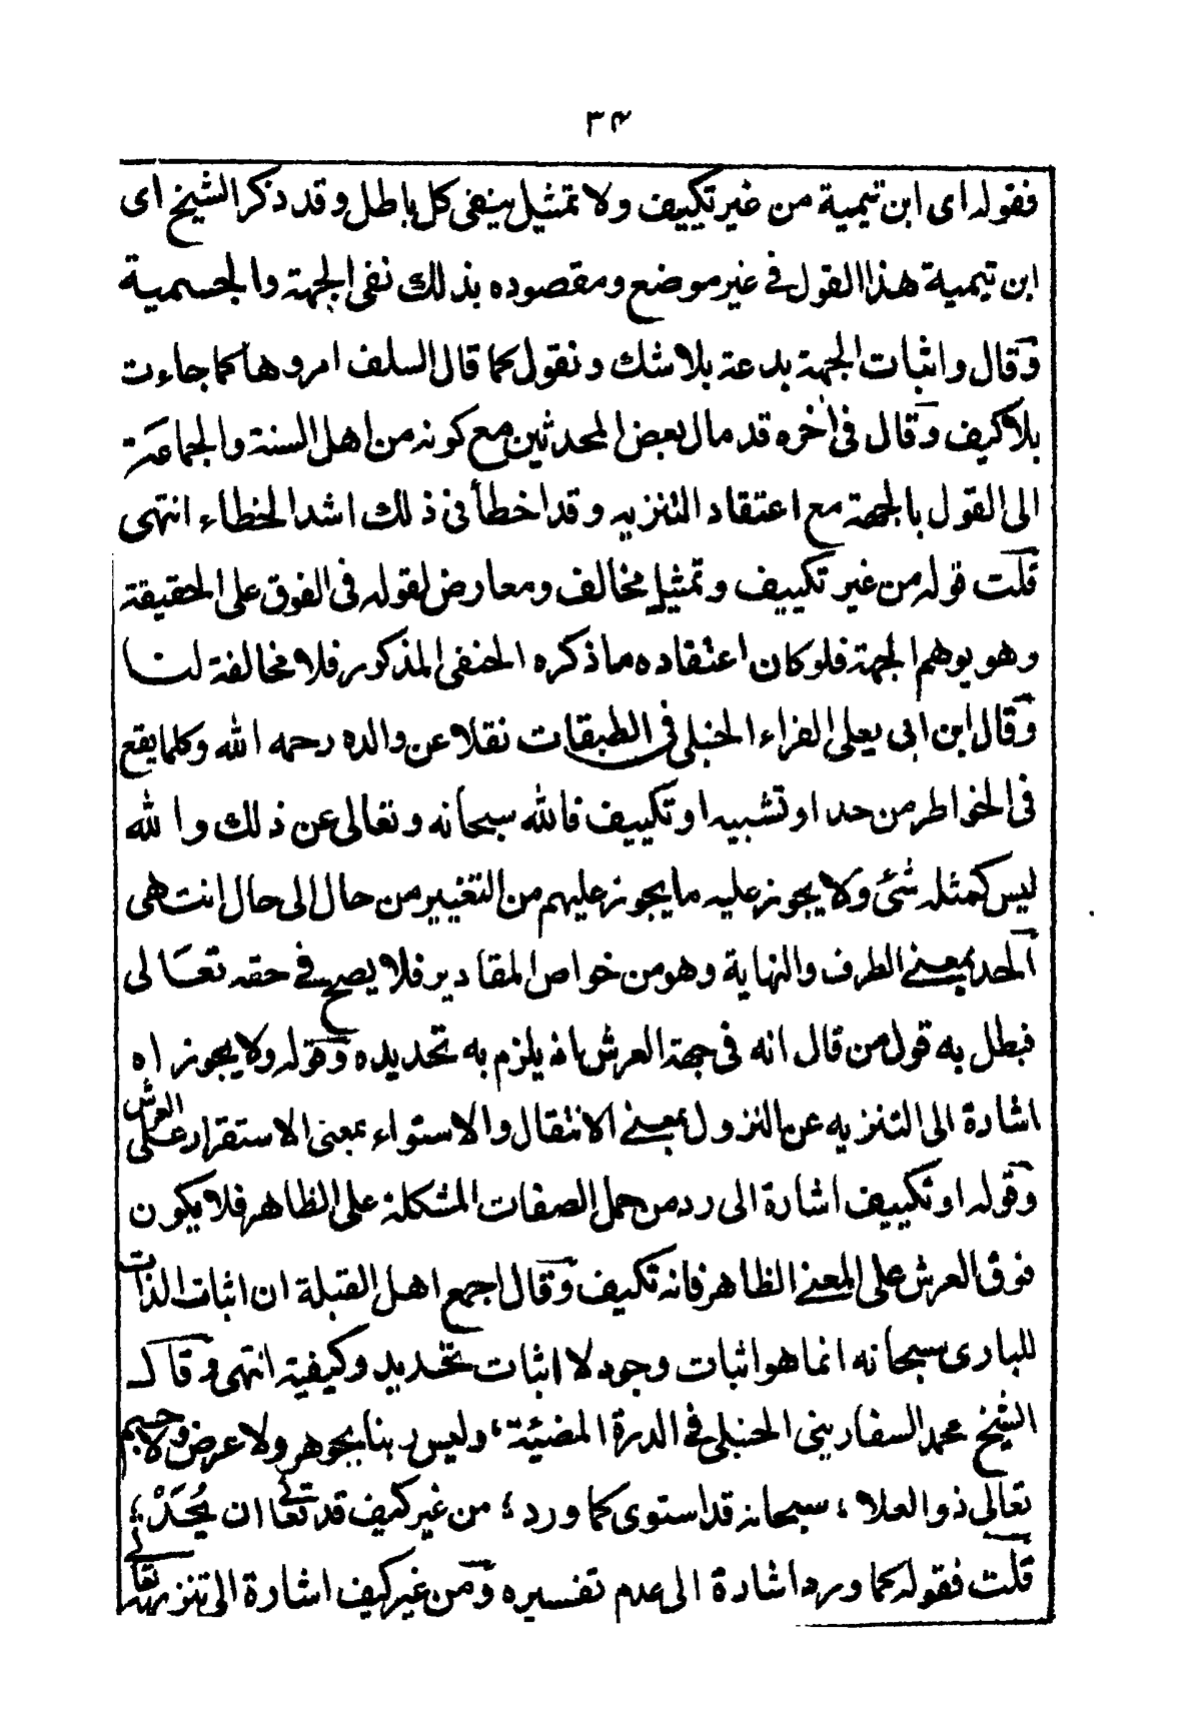 ۳۴
فقوله اى ابن تيمية من غير تكييف ولا تمثيل ينفى كل باطل وقد ذكر الشيخ اى
ابن تيمية هذا القول فى غير موضع ومقصوده بذلك نفى الجهة والجسمية
وقال واثبات الجهة بدعة بلا شك ونقول كما قال السلف امروها كما جاءت
بلا كيف وقال فى اٰخره قد مال بعض المحدثين مع كونه من اهل السنة والجماعة
الى القول بالجهة مع اعتقاد التنزيه وقد اخطأ فى ذلك اشد الخطاء انتهى
قلت قوله من غير تكييف وتمثيل مخالف ومعارض لقوله فى الفوق على الحقيقة
وهو يوهم الجهة فلو كان اعتقاده ما ذكره الحنفى المذكور فلا مخالفة لنا
وقال ابن ابى يعلى الفراء الحنبلى فى الطبقات نقلا عن والده رحمه الله وكلما يقع
فى الخواطر من حد او تشبيه او تكييف فالله سبحانه وتعالى عن ذلك والله
ليس كمثله شئ ولا يجوز عليه ما يجوز عليهم من التغيير من حال الى حال انتهى
الحد بمعنى الطرف والنهاية وهو من خواص المقادير فلا يصح فى حقه تعالى
فبطل به قول من قال انه فى جهة العرش فانه يلزم به تحديده وقوله ولا يجوز اه
اشارة الى التنزيه عن النزول بمعنى الانتقال والاستواء بمعنى الاستقرار على العرش
وقوله او تكييف اشارة الى رد من حمل الصفات المشكلة على الظاهر فلا يكون
فوق العرش على المعنى الظاهر فانه تكيف وقال اجمع اهل القبلة ان اثبات الذات
للبارى سبحانه انما هو اثبات وجود لا اثبات تحديد وكيفية انتهى وقال
الشيخ محمد السفارينى الحنبلى فى الدرة المضيئة ؛ وليس ربنا بجوهر ولا عرض ولا جسم
تعالى ذو العلا ؛ سبحانه قد استوى كما ورد ؛ من غير كيف قد تعالى ان يُحَدّْ ؛
قلت فقوله كما ورد اشارة الى عدم تفسيره ومن غير كيف اشارة الى تنزهه تعالى